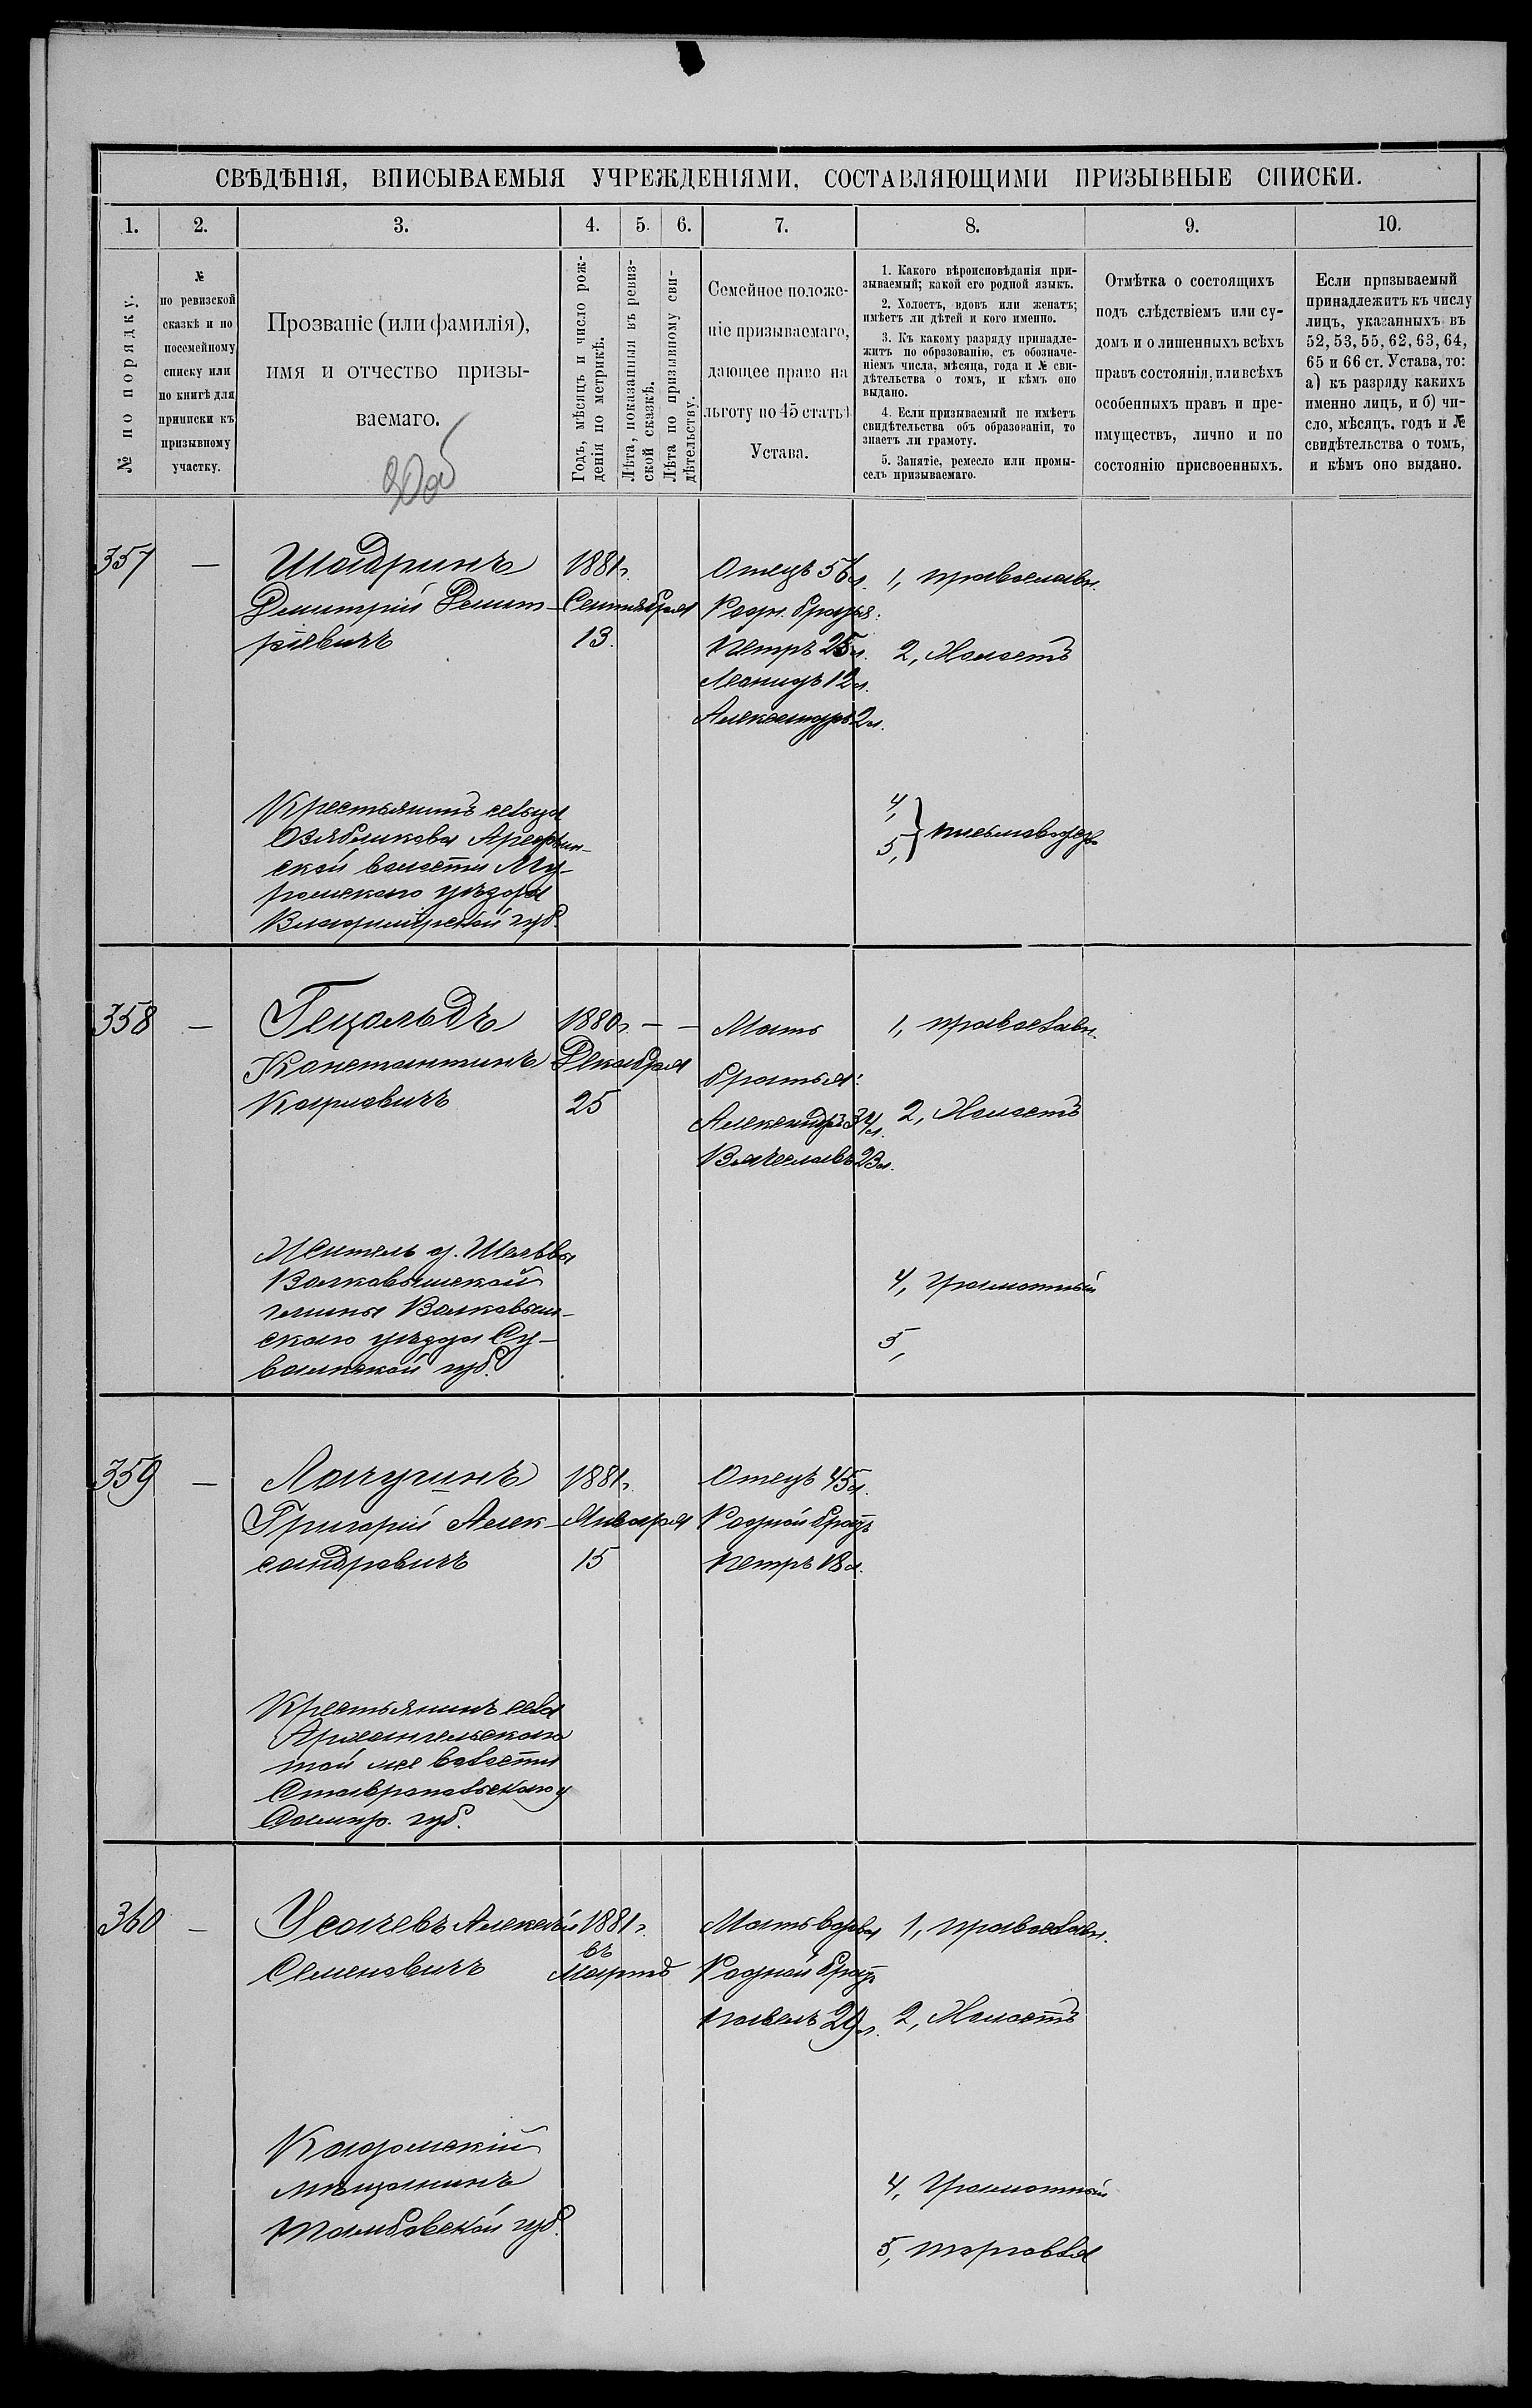 СВѢДѢНІЯ, ВПИСЫВАЕМЫЯ УЧРЕЖДЕНІЯМИ, СОСТАВЛЯЮЩИМИ ПРИЗЫВНЫЕ СПИСКИ.
1. 2. 3. 4. 5. 6. 7. 8. 9. 10.
№ по порядку.
№
по ревизской
сказкѣ и по
посемейному
списку или
по книгѣ для
приписки къ
призывному
участку.
Прозваніе (или фамилія),
имя и отчество призы-
ваемаго.
Годъ, мѣсяцъ и число рож-
денія по метрикѣ.
Лѣта, показанныя въ ревиз-
ской сказкѣ.
Лѣта по призывному сви-
дѣтельству.
Семейное положе-
ніе призываемаго,
дающее право на
льготу по 45 статьѣ
Устава.
1. Какого вѣроисповѣданія при-
зываемый; какой его родной языкъ.
2. Холостъ, вдовъ или женатъ;
имѣетъ ли дѣтей и кого именно.
3. Къ какому разряду принадле-
житъ по образованію, съ обозначе-
ніемъ числа, мѣсяца, года и № сви-
дѣтельства о томъ, и кѣмъ оно
выдано.
4. Если призываемый не имѣетъ
свидѣтельства объ образованіи, то
знаетъ ли грамоту.
5. Занятіе, ремесло или промы-
селъ призываемаго.
Отмѣтка о состоящихъ
подъ слѣдствіемъ или су-
домъ и о лишенныхъ всѣхъ
правъ состоянія, или всѣхъ
особенныхъ правъ и пре-
имуществъ, лично и по
состоянію присвоенныхъ.
Если призываемый
принадлежитъ къ числу
лицъ, указанныхъ въ
52, 53, 55, 62, 63, 64,
65 и 66 ст. Устава, то:
а) къ разряду какихъ
именно лицъ, и б) чи-
сло, мѣсяцъ, годъ и №
свидѣтельства о томъ,
и кѣмъ оно выдано.
357 —
Шадринъ
Димитрій Димит-
ріевичъ
1881 г.
Сентября
13.
Отецъ 56 л.
Родн. братья:
Петръ 25 л.
Леонидъ 12 л.
Александръ 2 л.
1, православн.
2, Холостъ
Крестьянинъ сельца
Озябликова Арефин-
ской волости Му-
ромскаго уѣзда
Владимірской губ.
4,
5, } письмоводъ
358 —
Гецольдъ
Константинъ
Карловичъ
1880 г. — —
Декабря
25
Мать
братья:
Александръ 34 л.
Вячеславъ 23 л.
1, православн.
2, Холостъ
Житель д. Шельвы
Волковышской
гмины Волковыш-
скаго уѣзда Су-
валкской губ.
4, Грамотный
5,
359 —
Лачугинъ
Григорій Алек-
сандровичъ
1881 г.
Января
15
Отецъ 45 л.
Родной братъ
Петръ 18 л.
Крестьянинъ села
Архангельскаго
той же волости
Ставропольскаго у
Самар. губ.
360 —
Усачевъ Алексѣй
Семеновичъ
1881 г.
въ
Мартѣ
Мать вдова
Родной братъ
Павелъ 29 л.
1, православн.
2, Холостъ
Кадомскій
мѣщанинъ
Тамбовской губ.
4, Грамотный
5, торговля